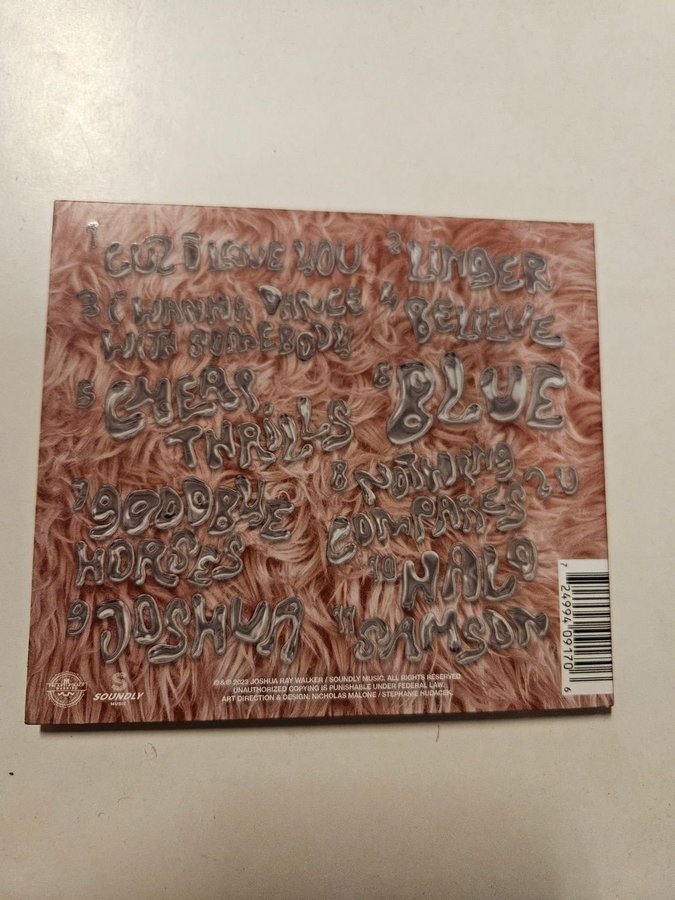 1 CUZ I LOVE YOU
2 LINGER
3 I WANNA DANCE
WITH SOMEBODY
4 BELIEVE
5 CHEAP
THRILLS
6 BLUE
7 GOODBYE
HORSES
8 NOTHING
COMPARES 2 U
9 JOSHUA
10 HALO
11 SAMSON
SOUNDLY
MUSIC
℗&© 2023 JOSHUA RAY WALKER / SOUNDLY MUSIC. ALL RIGHTS RESERVED
UNAUTHORIZED COPYING IS PUNISHABLE UNDER FEDERAL LAW.
ART DIRECTION & DESIGN: NICHOLAS MALONE / STEPHANIE HUDACEK.
7 24994 09170 6